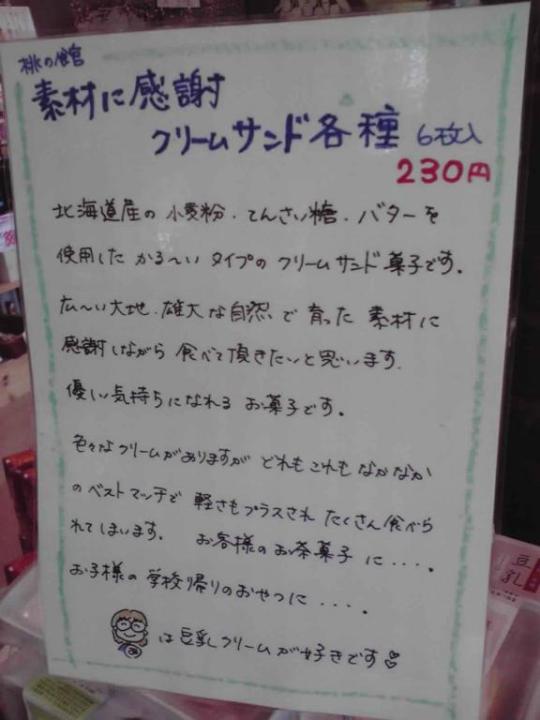 桃の館
素材に感謝
クリームサンド各種 6枚入
230円
北海道産の小麦粉・てんさい糖・バターを
使用した かる〜い タイプの クリームサンド菓子です。
広〜い大地・雄大な自然で 育った 素材に
感謝しながら 食べて頂きたいと思います。
優しい気持ちになれる お菓子です。
色々なクリームがありますが どれもこれも なかなか
のベストマッチで 軽さもプラスされ たくさん食べら
れてしまいます。 お客様のお茶菓子に・・・・。
お子様の学校帰りのおやつに・・・・。
は豆乳クリームが好きです♡
豆乳